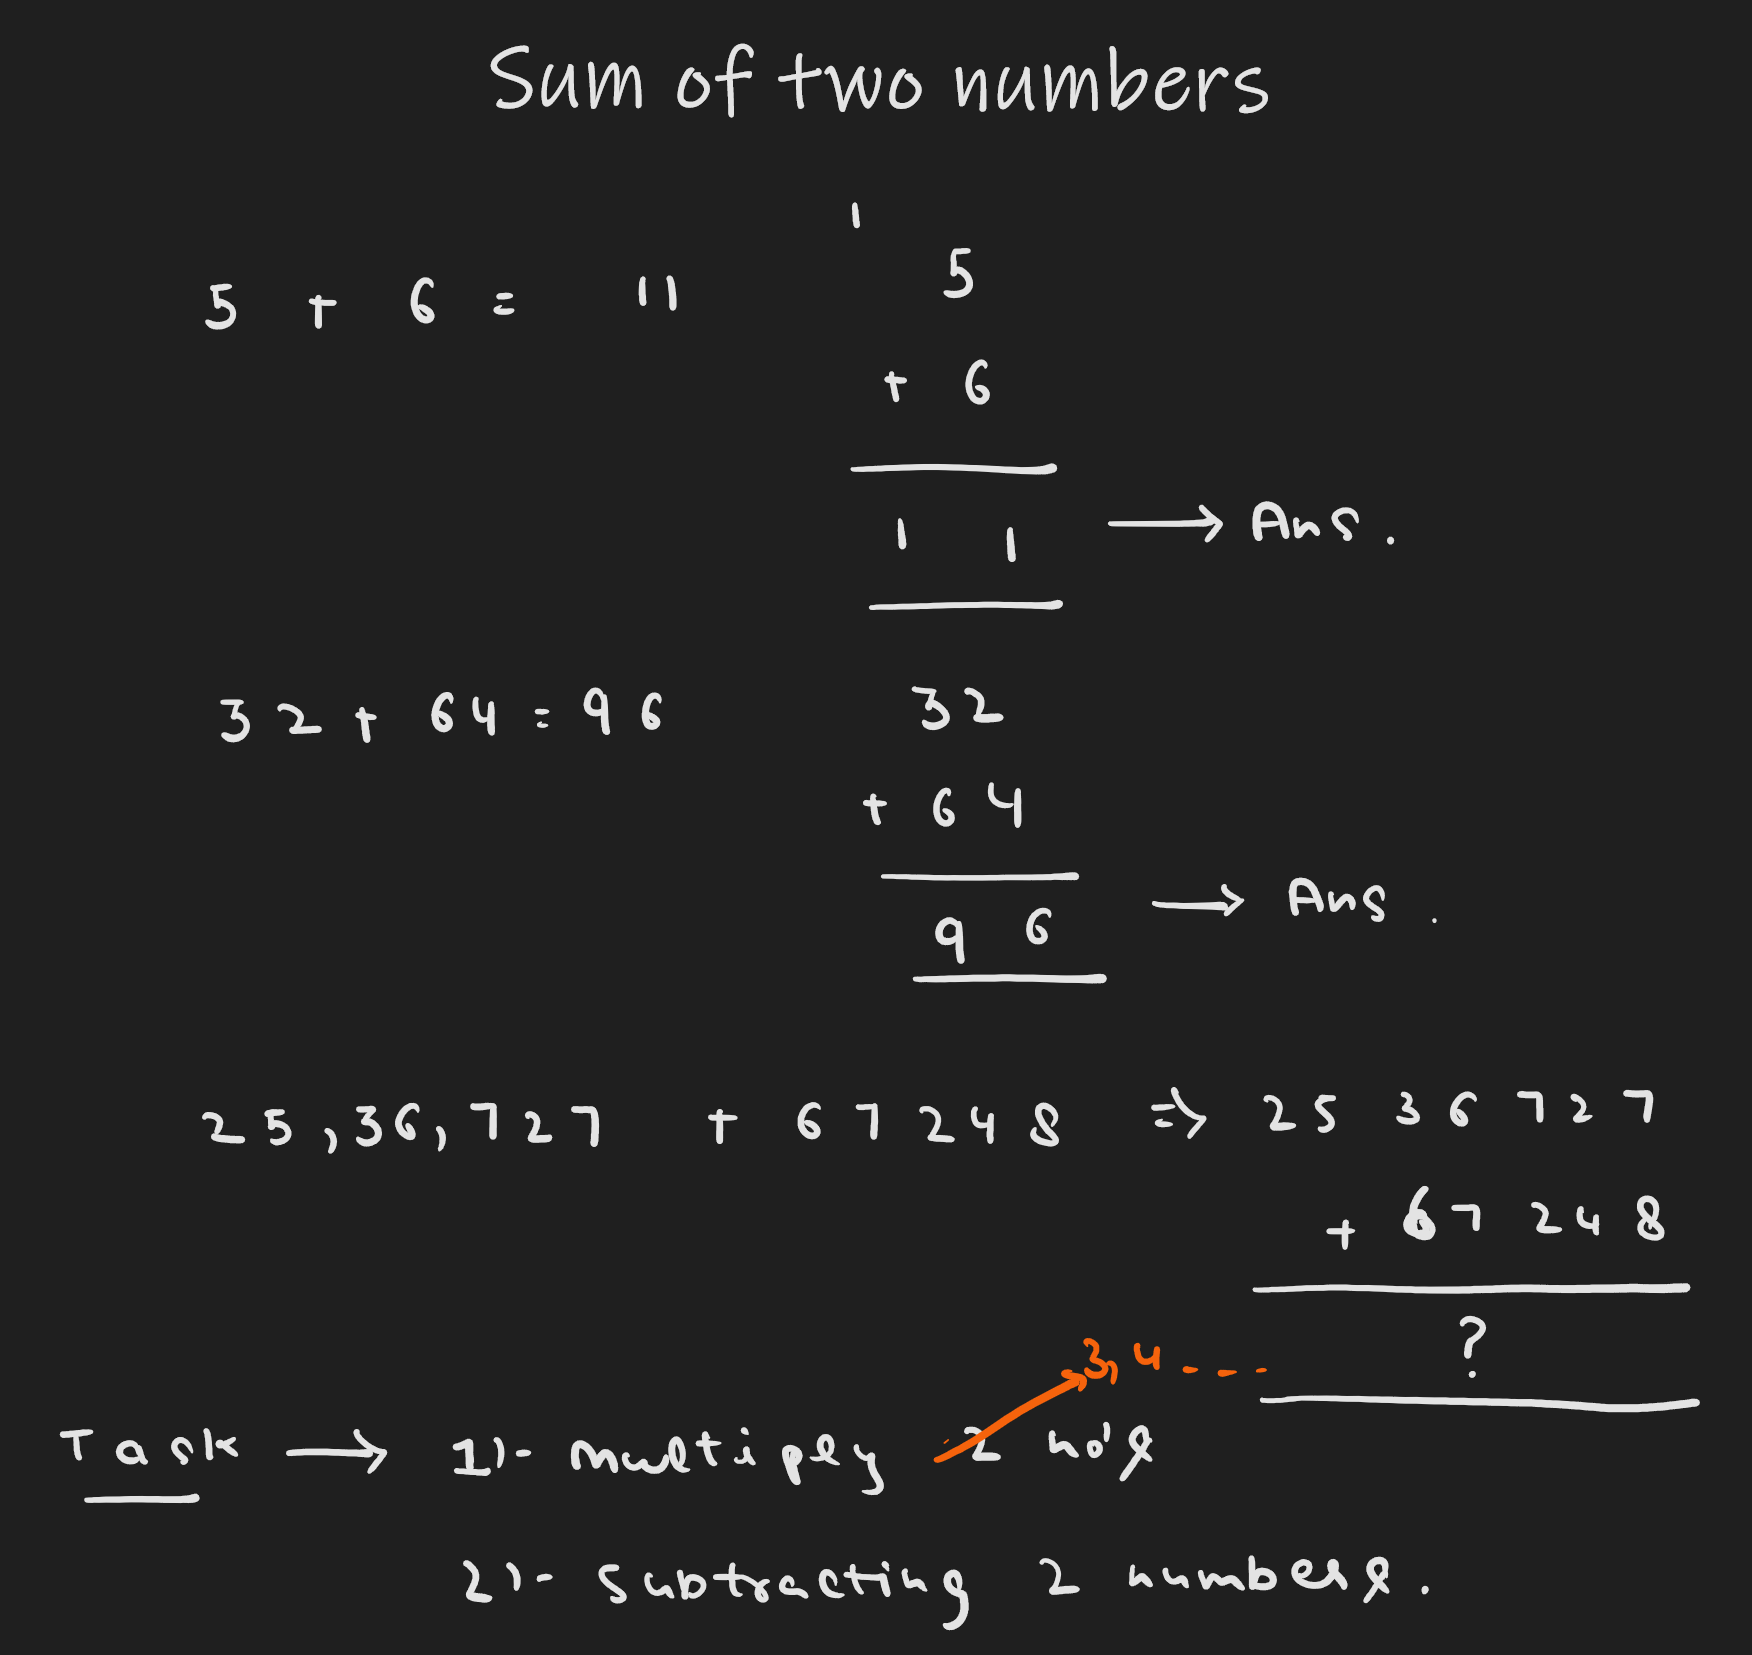 Sum of two numbers
1
5 + 6 = 11
5
+ 6
1 1 → Ans.
32 + 64 = 96
32
+ 64
9 6 → Ans.
25,36,727 + 67248 ⇒ 25 36727
+ 67 248
?
3,4----
Task → 1)- multiply 2 no's
2)- Subtracting 2 numbers.